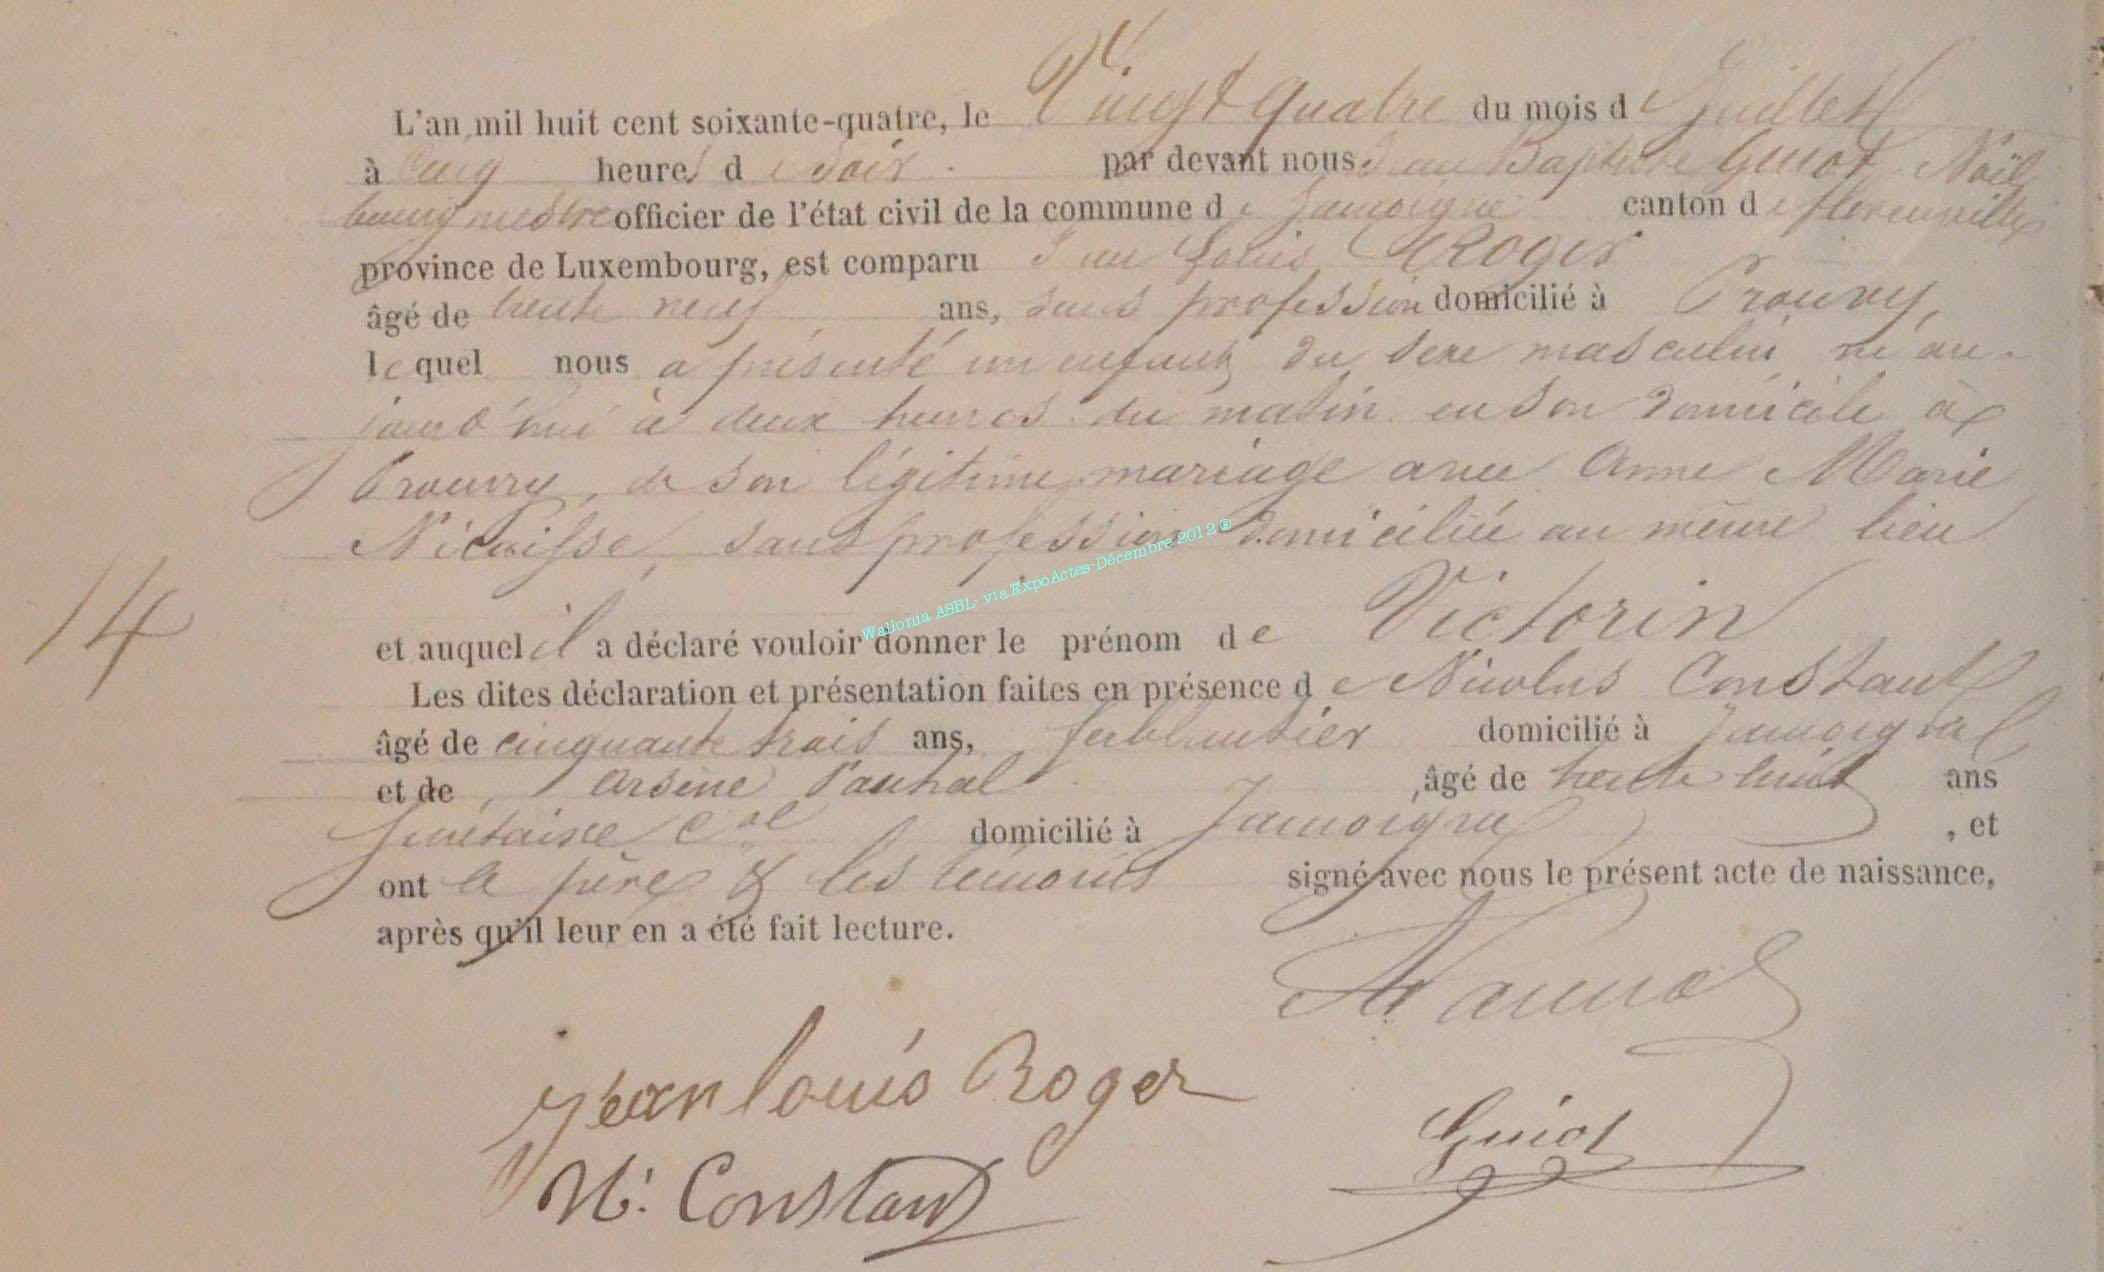 L'an mil huit cent soixante-quatre, le Vingt quatre du mois de Juillet
à Cinq heures d u Soir par devant nous Jean Baptiste Guiot Noël
bourgmestre officier de l'état civil de la commune de Jamoigne canton de florenville
province de Luxembourg, est comparu Jean Louis Roger
âgé de trente neuf ans, sans profession domicilié à Prouvy,
lequel nous a présenté un enfant du sexe masculin né au-
jourd'hui à deux heures du matin en son domicile à
Prouvy, de son légitime mariage avec Anne Marie
Nicaisse, sans profession domiciliée au même lieu
14
et auquel il a déclaré vouloir donner le prénom de Victorin
Les dites déclaration et présentation faites en présence de Nicolas Constant
âgé de cinquante trois ans, ferblantier domicilié à Jamoigne
et de Arsène , âgé de trente huit ans
Secrétaire Cal domicilié à Jamoigne , et
ont le père & les témoins signé avec nous le présent acte de naissance,
après qu'il leur en a été fait lecture.
Jean louis Roger
Guiot
N. Constant
Wallonia ASBL- via ExpoActes-Décembre 2012 ®